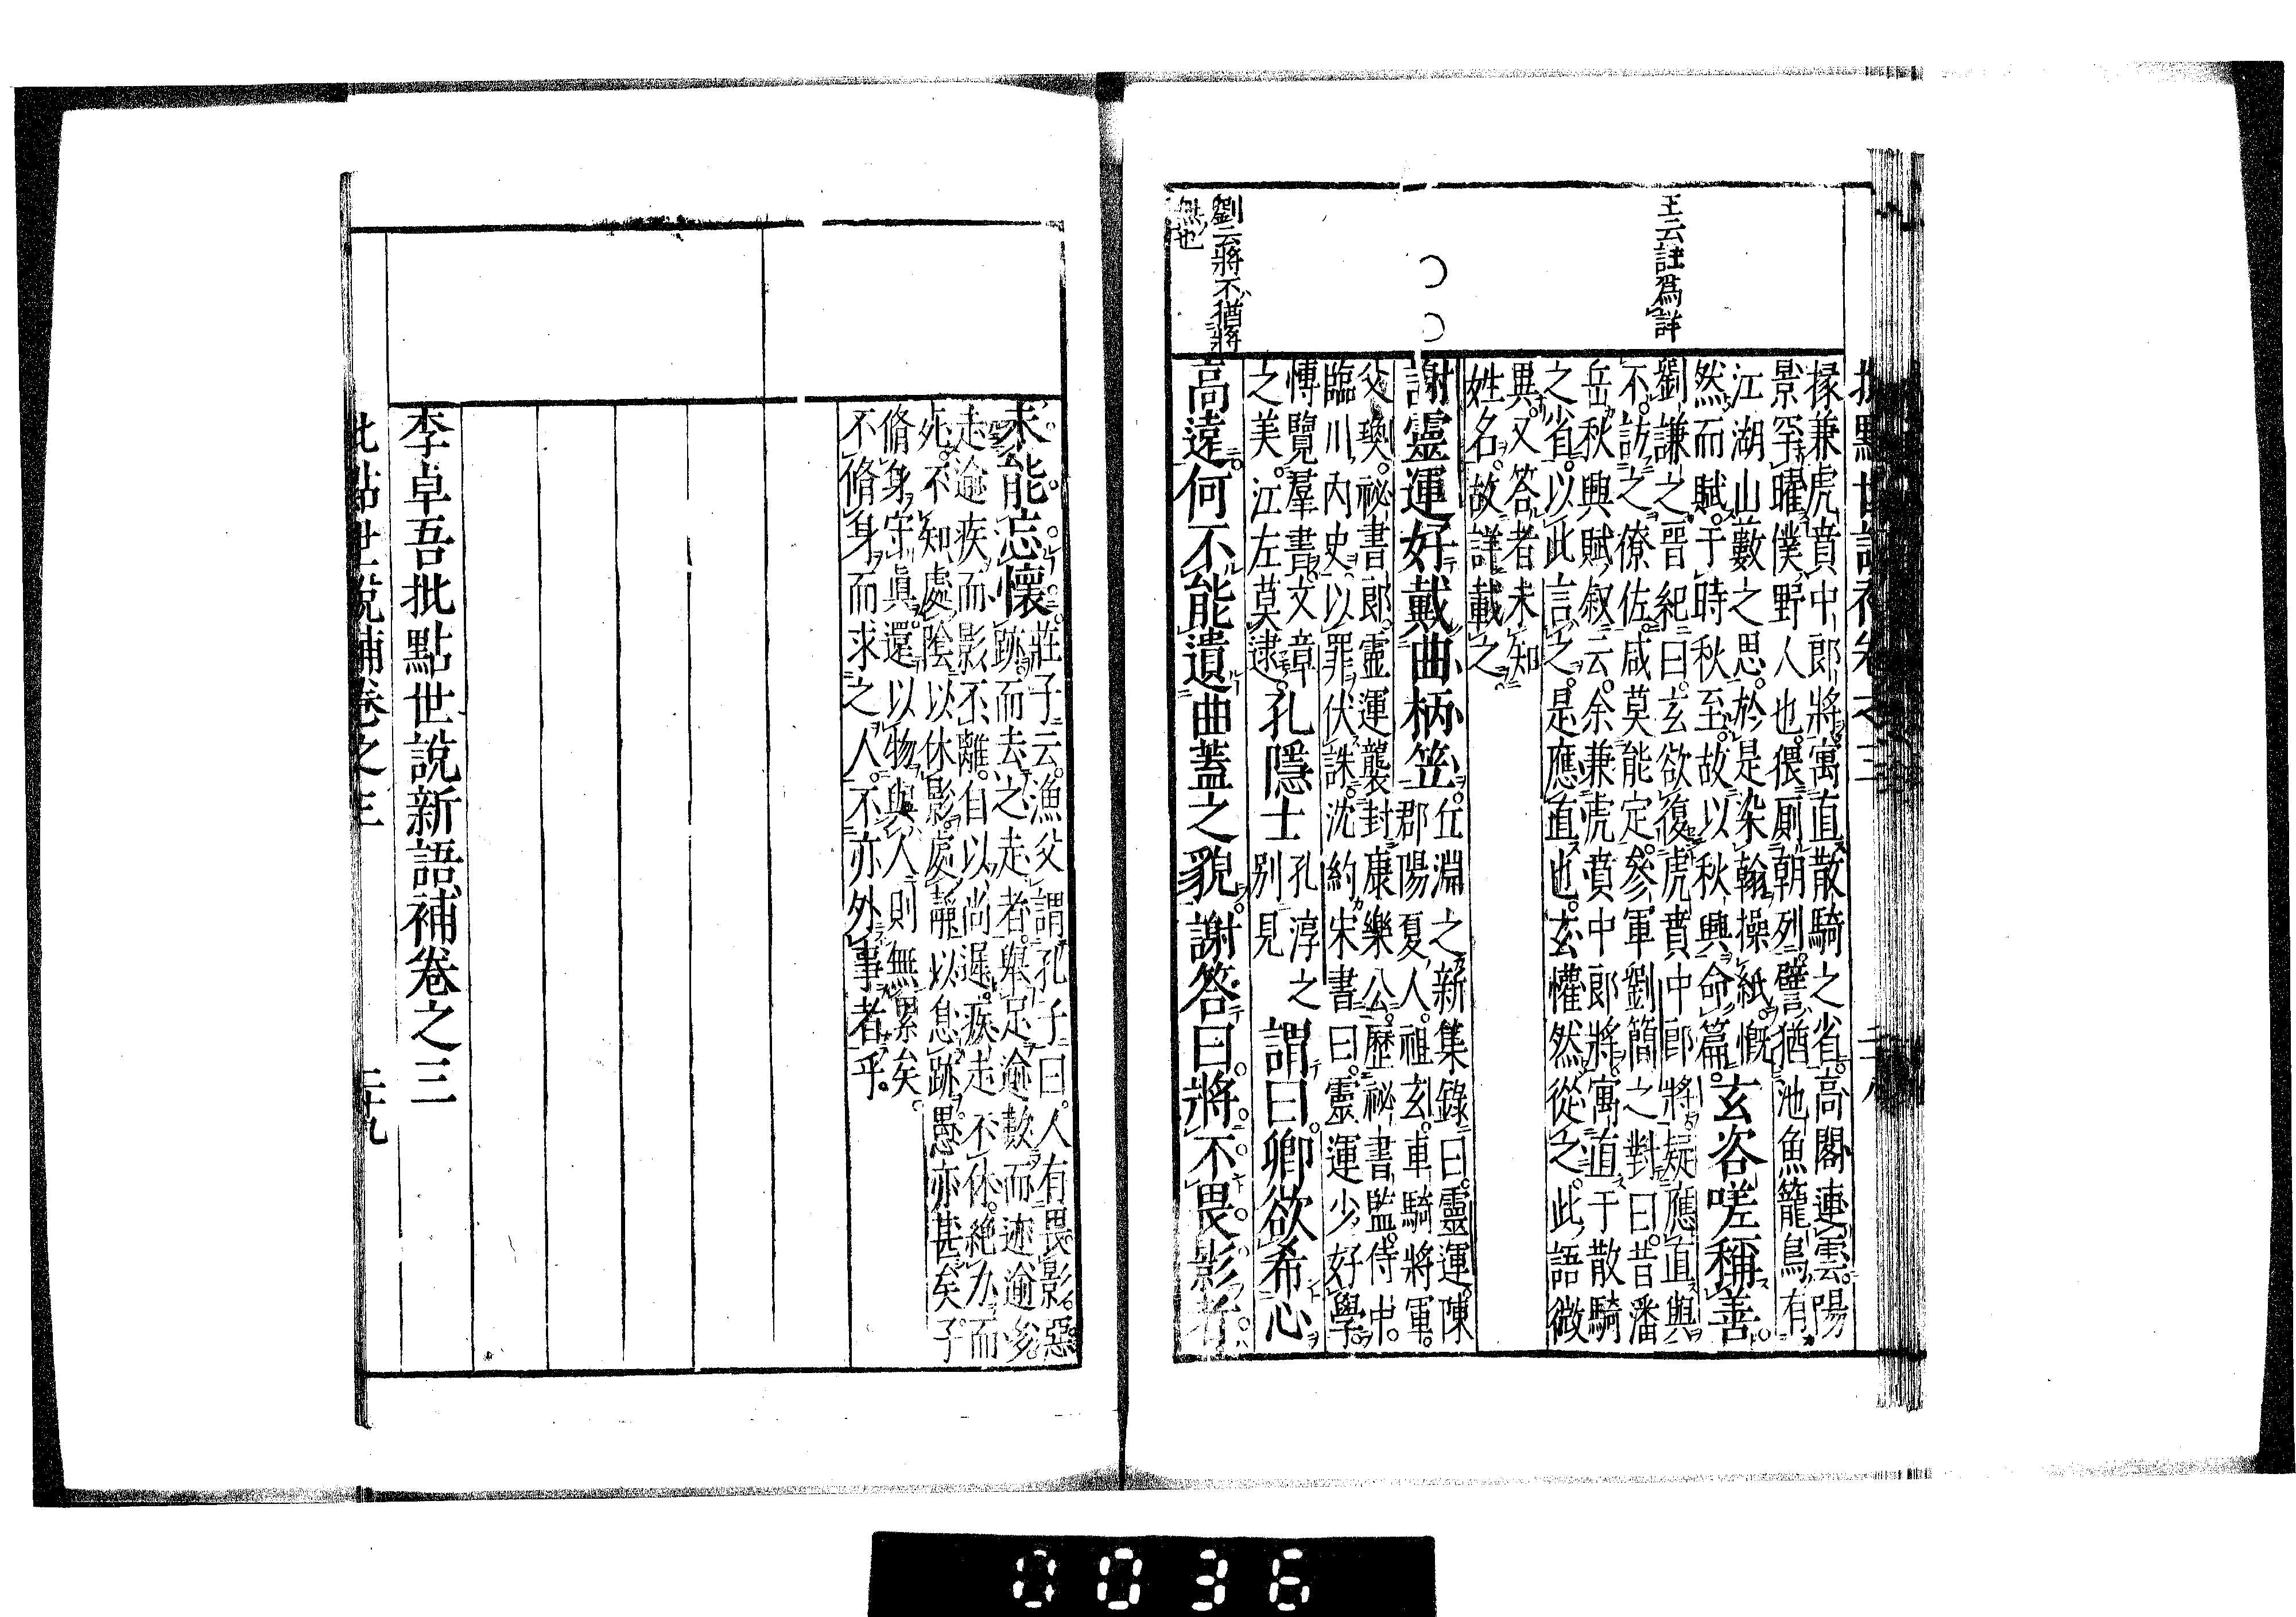 批點世說補卷之三 二十八
王云註爲詳
掾兼虎賁中郎將寓直散騎之省。高閣連雲。陽
景罕曜。僕野人也。偎厠朝列。譬猶池魚籠鳥。有
江湖山藪之思。於是染翰操紙。慨
然而賦。于時秋至。故以秋興命篇。玄咨嗟稱善。
劉謙之晉紀曰。玄欲復虎賁中郎將。疑應直與
不。訪之僚佐。咸莫能定。參軍劉簡之對曰。昔潘
岳秋興賦叙云。余兼虎賁中郎將。寓直于散騎
之省。以此言之。是應直也。玄懽然從之。此語微
異。又答者未知
姓名。故詳載之。
○○
謝靈運好戴曲柄笠。丘淵之新集錄曰。靈運。陳
郡陽夏人。祖玄。車騎將軍。
父瑍。祕書郎。靈運襲封康樂公。歷祕書監。侍中。
臨川內史。以罪伏誅。沈約宋書曰。靈運少好學。
博覽羣書。文章
之美。江左莫逮。孔隱士孔淳之
別見謂曰。卿欲希心
劉云將不猶將
無也
高遠。何不能遺曲蓋之貌。謝答曰。將不畏影者
未能忘懷。莊子云。漁父謂孔子曰。人有畏影。惡
跡。而去之走者。舉足逾數而迹逾多。
走逾疾而影不離。自以尚遲。疾走不休。絕力而
死。不知處陰以休影。處靜以息跡。愚亦甚矣。子
脩身守眞。還以物與人。則無累矣。
不脩身而求之人。不亦外事者乎。
李卓吾批點世說新語補卷之三
批點世說補卷之三 二十九
0036